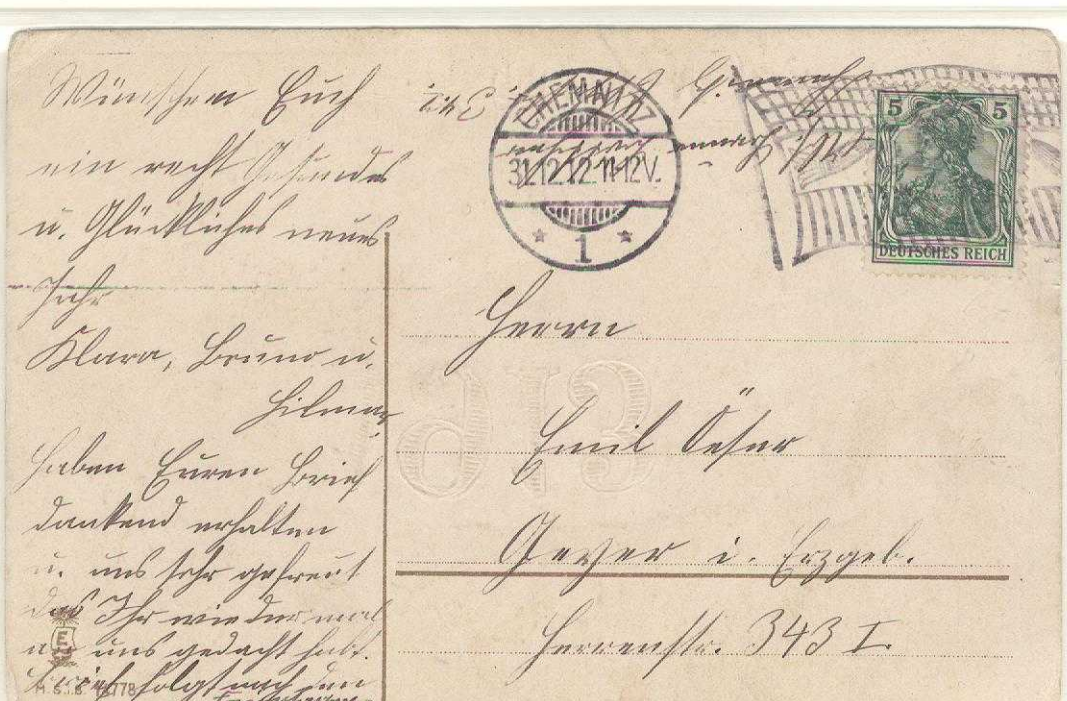 Wünschen Euch
ein recht Gesundes
u. Glückliches neues
Jahr
Klara, Bruno u.
Hilmar
haben Euren Brief
dankend erhalten
u. uns sehr gefreut
das Ihr wieder mal
an uns gedacht habt.
Brief folgt nach den
CHEMNITZ
31.12.12.11-12V.
* 1 *
5 5
DEUTSCHES REICH
Herrn
Emil Oeser
Geyer i. Erzgeb.
Herrenstr. 343 I.